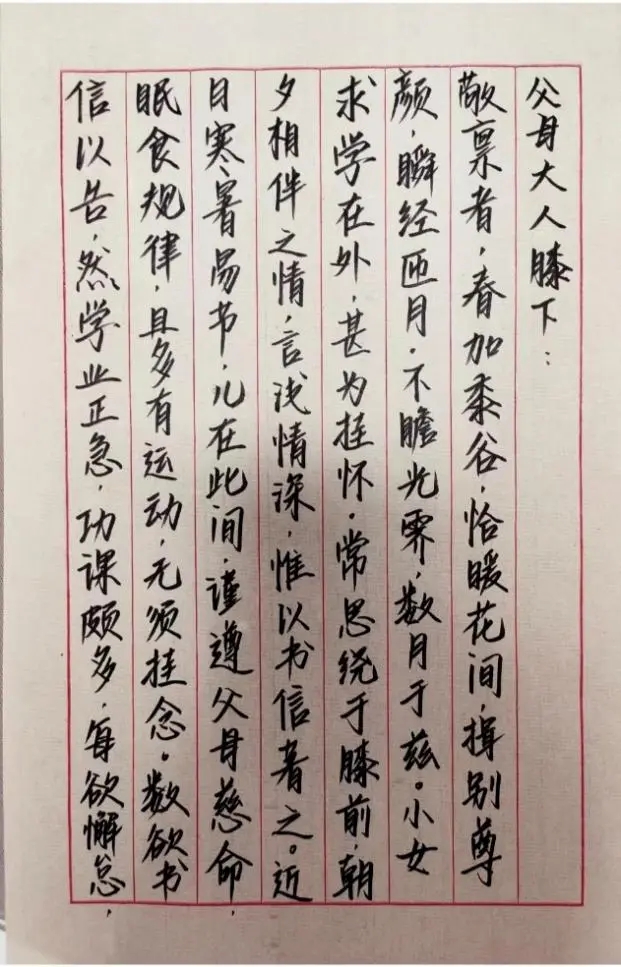 父母大人膝下：
敬禀者，春加黍谷，恰暖花间，揖别尊
颜，瞬经匝月，不瞻光霁，数月于兹。小女
求学在外，甚为挂怀。常思绕于膝前，朝
夕相伴之情，言浅情深，惟以书信著之。近
日寒暑易节，儿在此间，谨遵父母慈命，
眠食规律，且多有运动，无须挂念。数欲书
信以告，然学业正急，功课颇多，每欲懈怠，